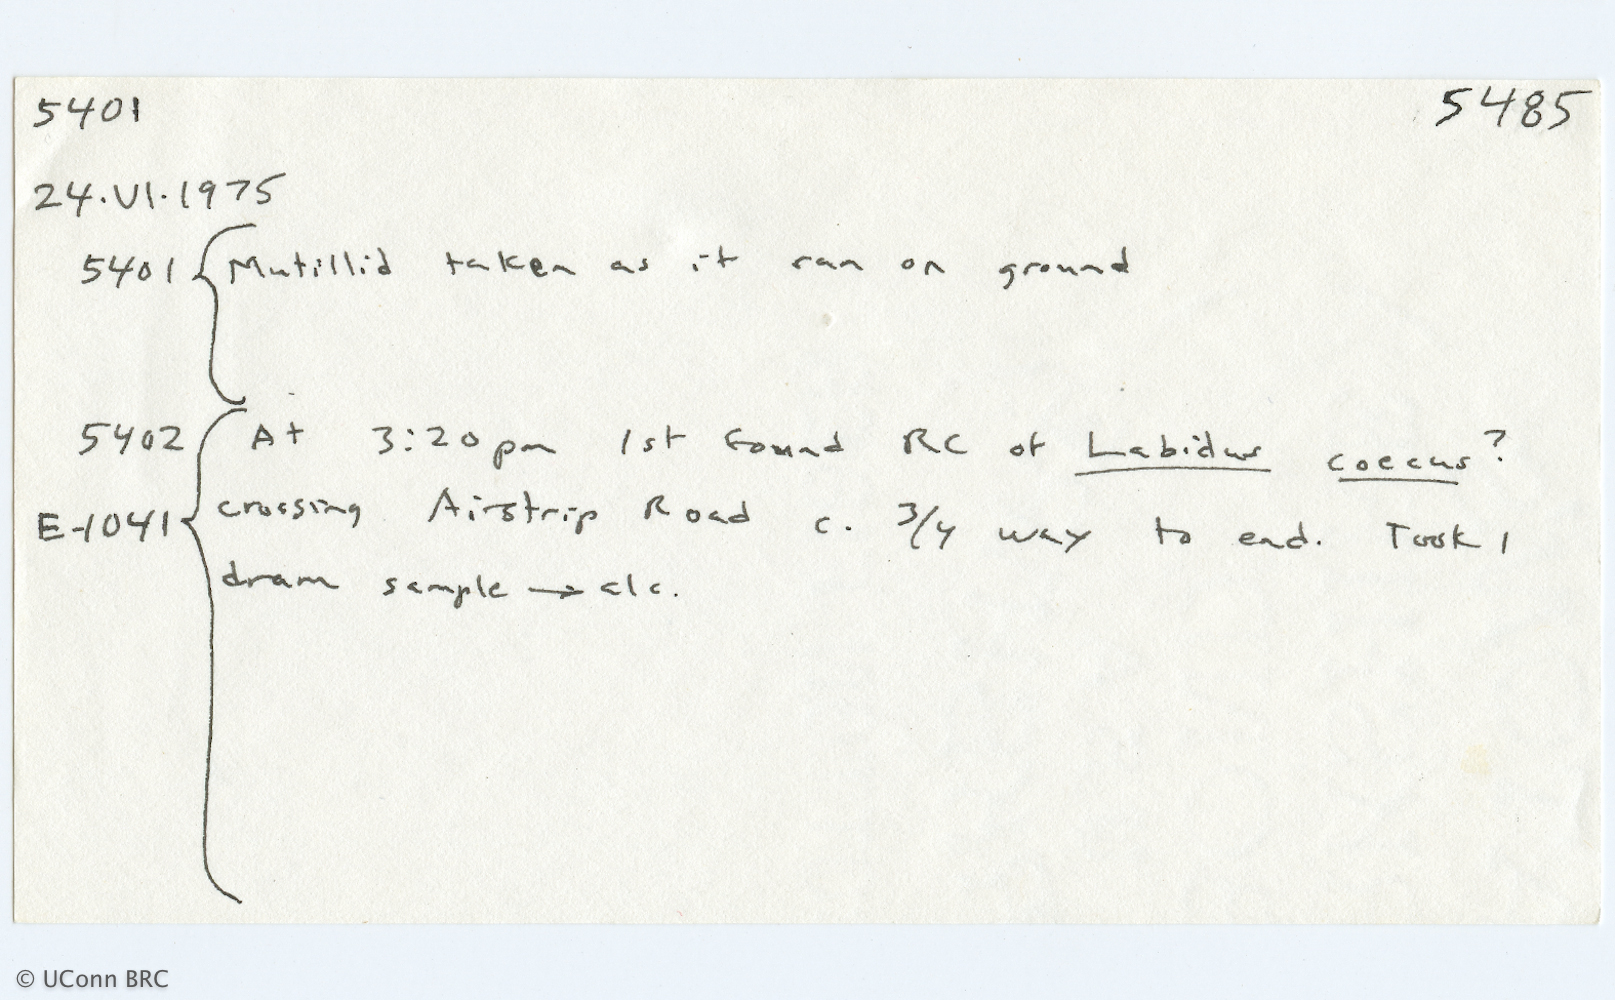 5401 5485
24.VI.1975
5401 { Mutillid taken as it ran on ground
5402 { At 3:20 pm 1st found RC of Labidus coecus?
E-1041 crossing Airstrip Road c. 3/4 way to end. Took 1
dram sample → alc.
© UConn BRC